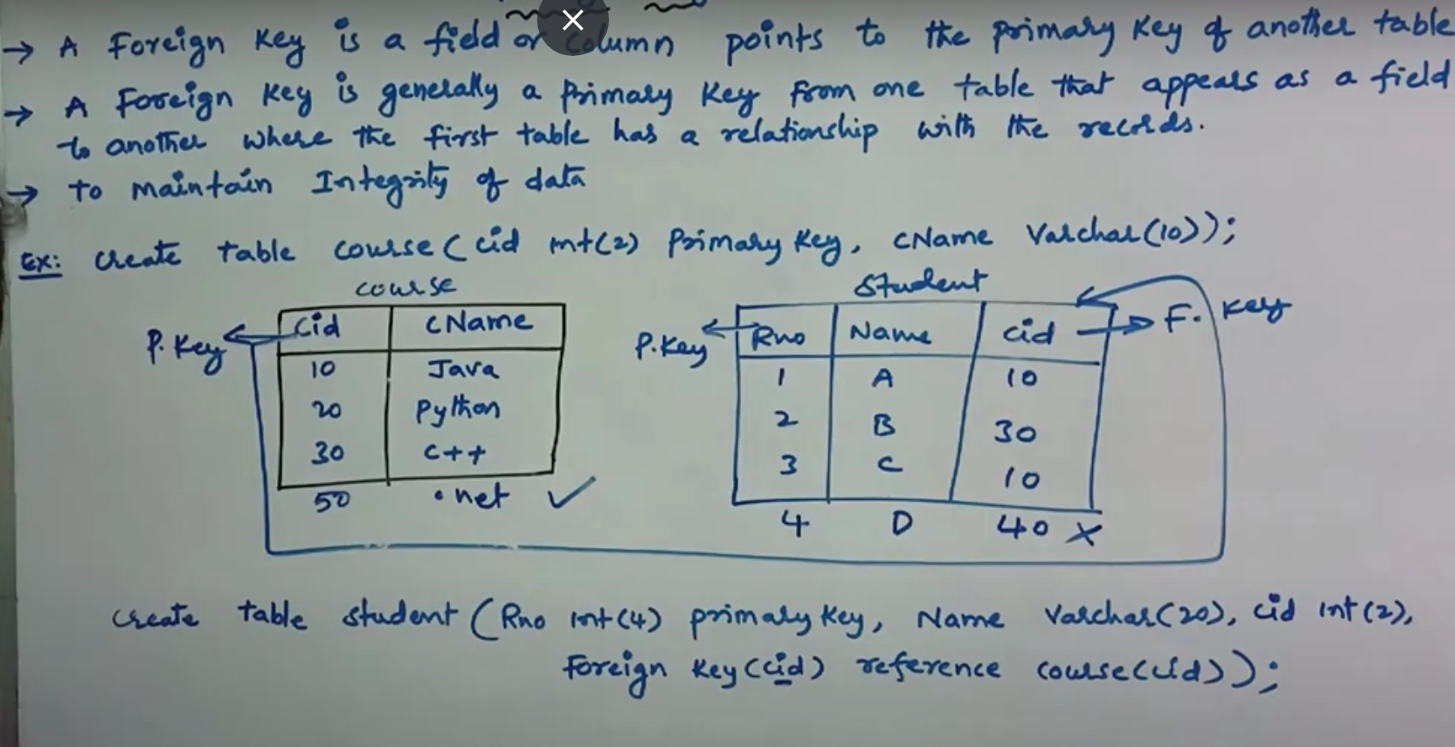 → A Foreign Key is a field or column points to the primary key of another table
→ A Foreign Key is generally a Primary Key from one table that appears as a field
to another where the first table has a relationship with the records.
→ To maintain Integrity of data
Ex: Create table course ( cid int(2) Primary Key, CName Varchar(10));
course
P.Key
Cid CName
10 Java
20 Python
30 C++
50 .net ✓
Student
P.Key
Rno Name Cid
F. Key
1 A 10
2 B 30
3 C 10
4 D 40 X
Create table student (Rno int(4) primary key, Name Varchar(20), Cid int(2),
Foreign Key (cid) reference course(cid));